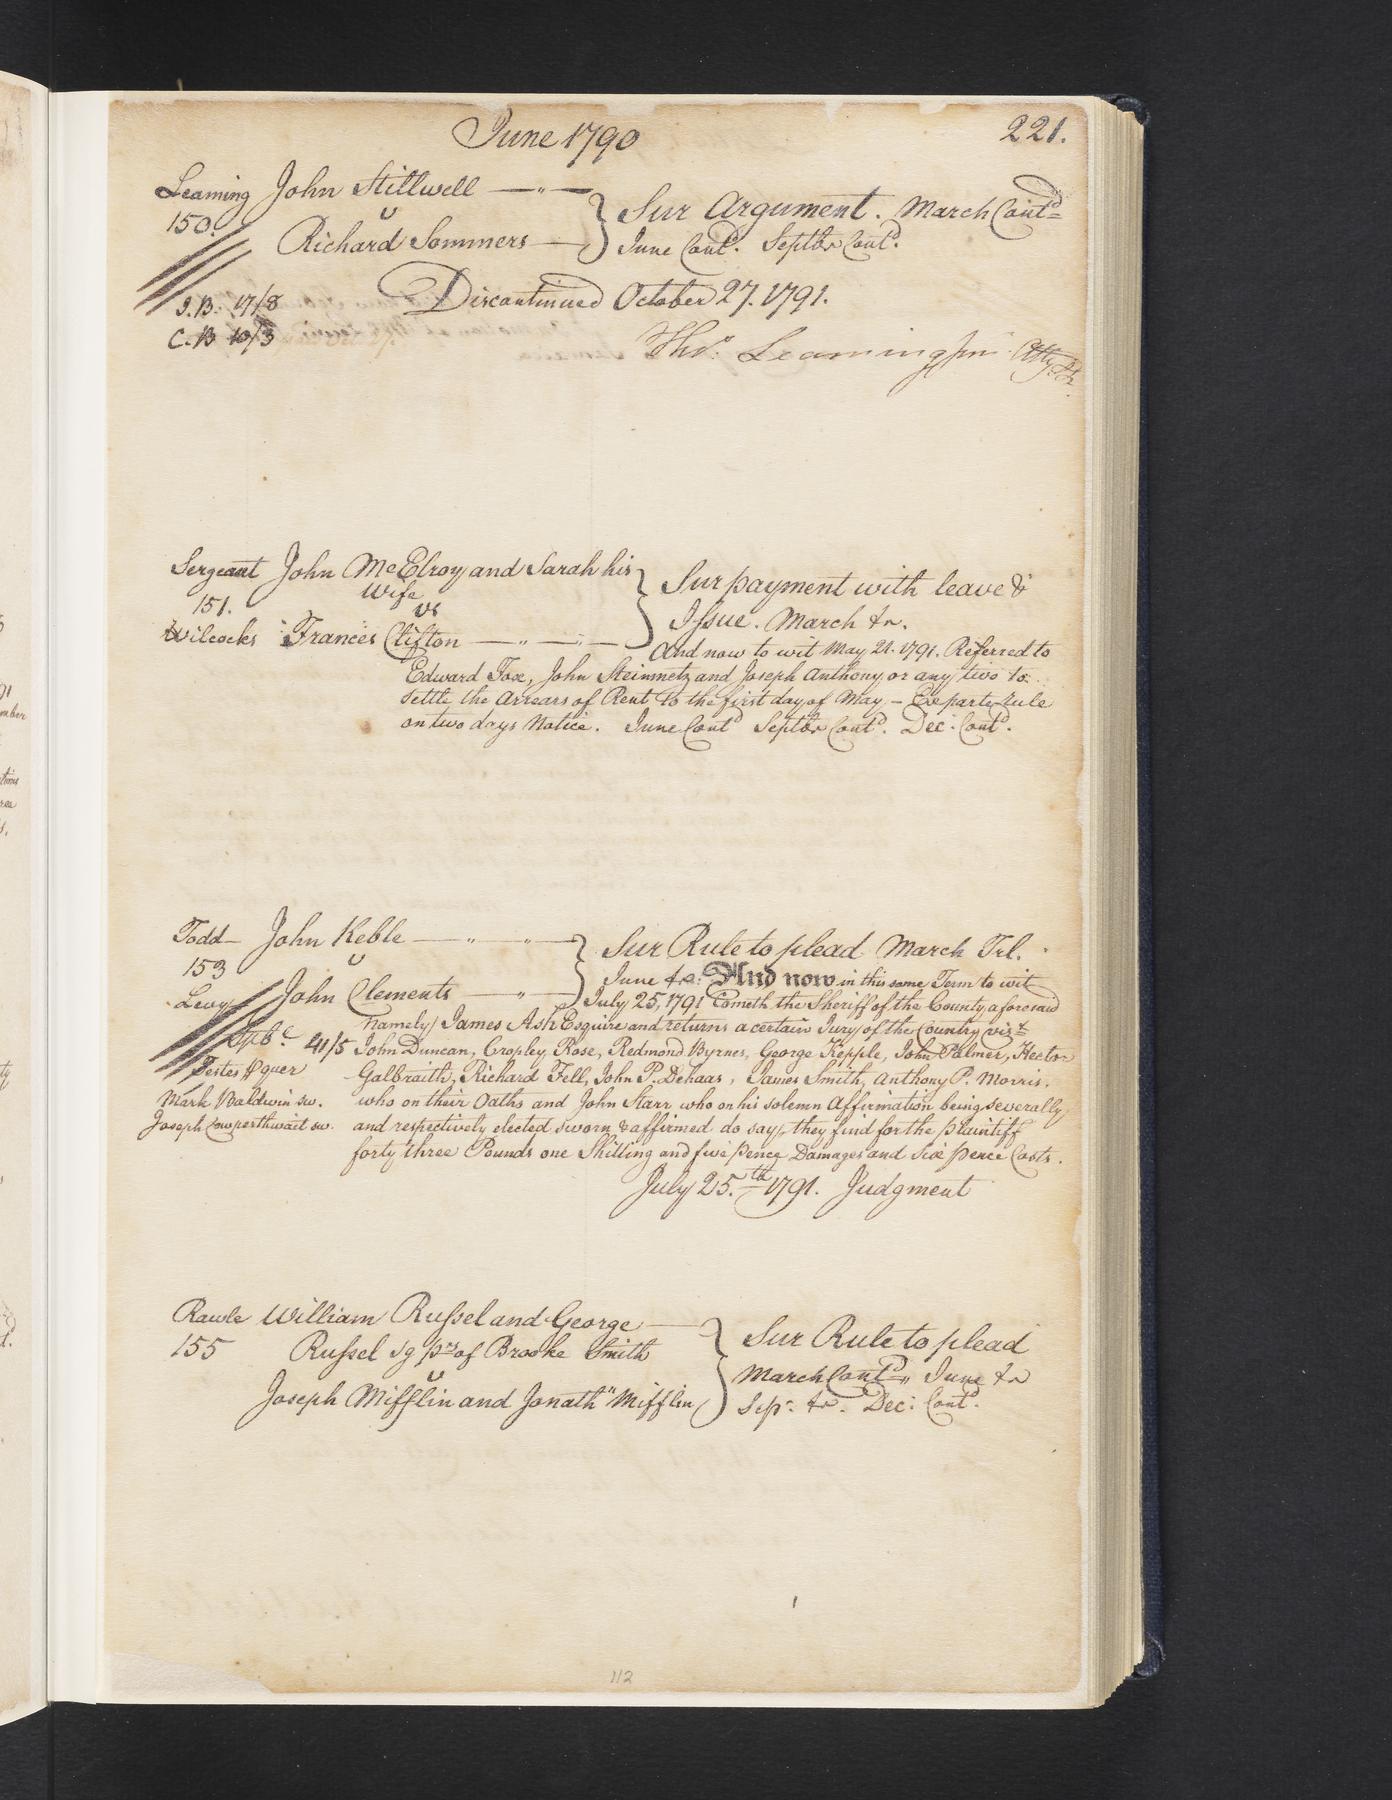 June 1790
221.
Leaming John Stillwell
150. v
Richard Sommers
Sur Argument. March Contd
June Contd. Septbr Contd.
J.B. 17/8
C.B 10/3
Discontinued October 27. 1791.
Thos. Leaming jun Atty
Sergeant John McElroy and Sarah his
Wife
151. vs
Wilcocks Frances Clifton
Sur payment with leave &
Issue. March
And now to wit May 21. 1791. Referred to
Edward Fox, John Steinmetz and Joseph Anthony or any two to
settle the Arrears of Rent to the first day of May – Ex parte rule
on two days Notice. June Contd Septbr Contd. Dec: Contd.
Todd John Keble
153 v
Levy John Clements
Sur Rule to plead March Trl.
June And now in this same Term to wit
July 25, 1791 Cometh the Sheriff of the County aforesaid
namely James Ash Esquire and returns a certain Jury of the Country vizt
41/5 John Duncan, Cropley Rose, Redmond Byrnes, George Kepple, John Palmer, Hector
Testes quer Galbraith, Richard Fell, John P. Dehaas, James Smith, Anthony P. Morris.
Mark Baldwin sw. who on their Oaths and John Starr who on his solemn Affirmation being severally
Joseph Cowperthwait sw. and respectively elected sworn & affirmed do say, they find for the plaintiff
forty three Pounds one Shilling and five pence Damages and Six pence Costs.
July 25.th 1791. Judgment
Rawle William Russel and George
155 Russel of Brooke Smith
v
Joseph Mifflin and Jonathn Mifflin
Sur Rule to plead
March Contd June
Sepr. Dec: Contd.
112